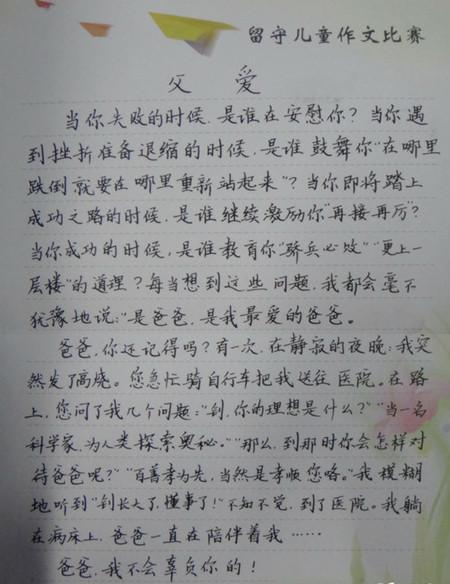 留守儿童作文比赛
父 爱
当你失败的时候，是谁在安慰你？当你遇
到挫折准备退缩的时候，是谁鼓舞你“在哪里
跌倒就要在哪里重新站起来”？当你即将踏上
成功之路的时候，是谁继续激励你“再接再厉？
当你成功的时候，是谁教育你“骄兵必败”“更上一
层楼”的道理？每当想到这些问题，我都会毫不
犹豫地说：“是爸爸，是我最爱的爸爸。
爸爸，你还记得吗？有一次，在静寂的夜晚，我突
然发了高烧。您急忙骑自行车把我送往医院。在路
上，您问了我几个问题：“钊，你的理想是什么？”“当一名
科学家，为人类探索奥秘。”“那么，到那时你会怎样对
待爸爸呢？”“百善孝为先，当然是孝顺您咯。”我模糊
地听到“钊长大了，懂事了！”不知不觉，到了医院。我躺
在病床上，爸爸一直在陪伴着我……
爸爸，我不会辜负你的！